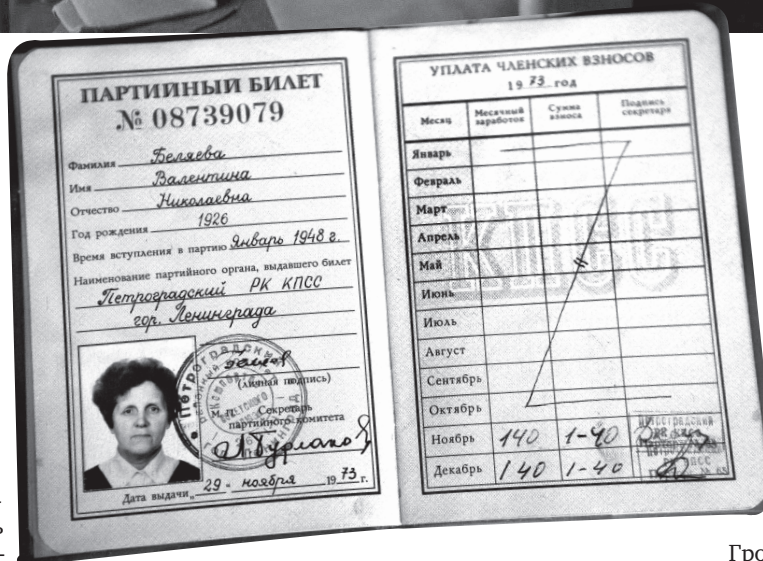 ПАРТИЙНЫЙ БИЛЕТ
№ 08739079
Фамилия Беляева
Имя Валентина
Отчество Николаевна
Год рождения 1926
Время вступления в партию Январь 1948 г.
Наименование партийного органа, выдавшего билет
Петроградский РК КПСС
гор. Ленинграда
(личная подпись)
М.П. Секретарь
партийного комитета
Дата выдачи „29" ноября 1973 г.
УПЛАТА ЧЛЕНСКИХ ВЗНОСОВ
1973 год
Месяц Месячный заработок Сумма взноса Подпись секретаря
Январь
Февраль
Март
Апрель
Май
Июнь
Июль
Август
Сентябрь
Октябрь
Ноябрь 140 1-40
Декабрь 140 1-40
КПСС
Гро